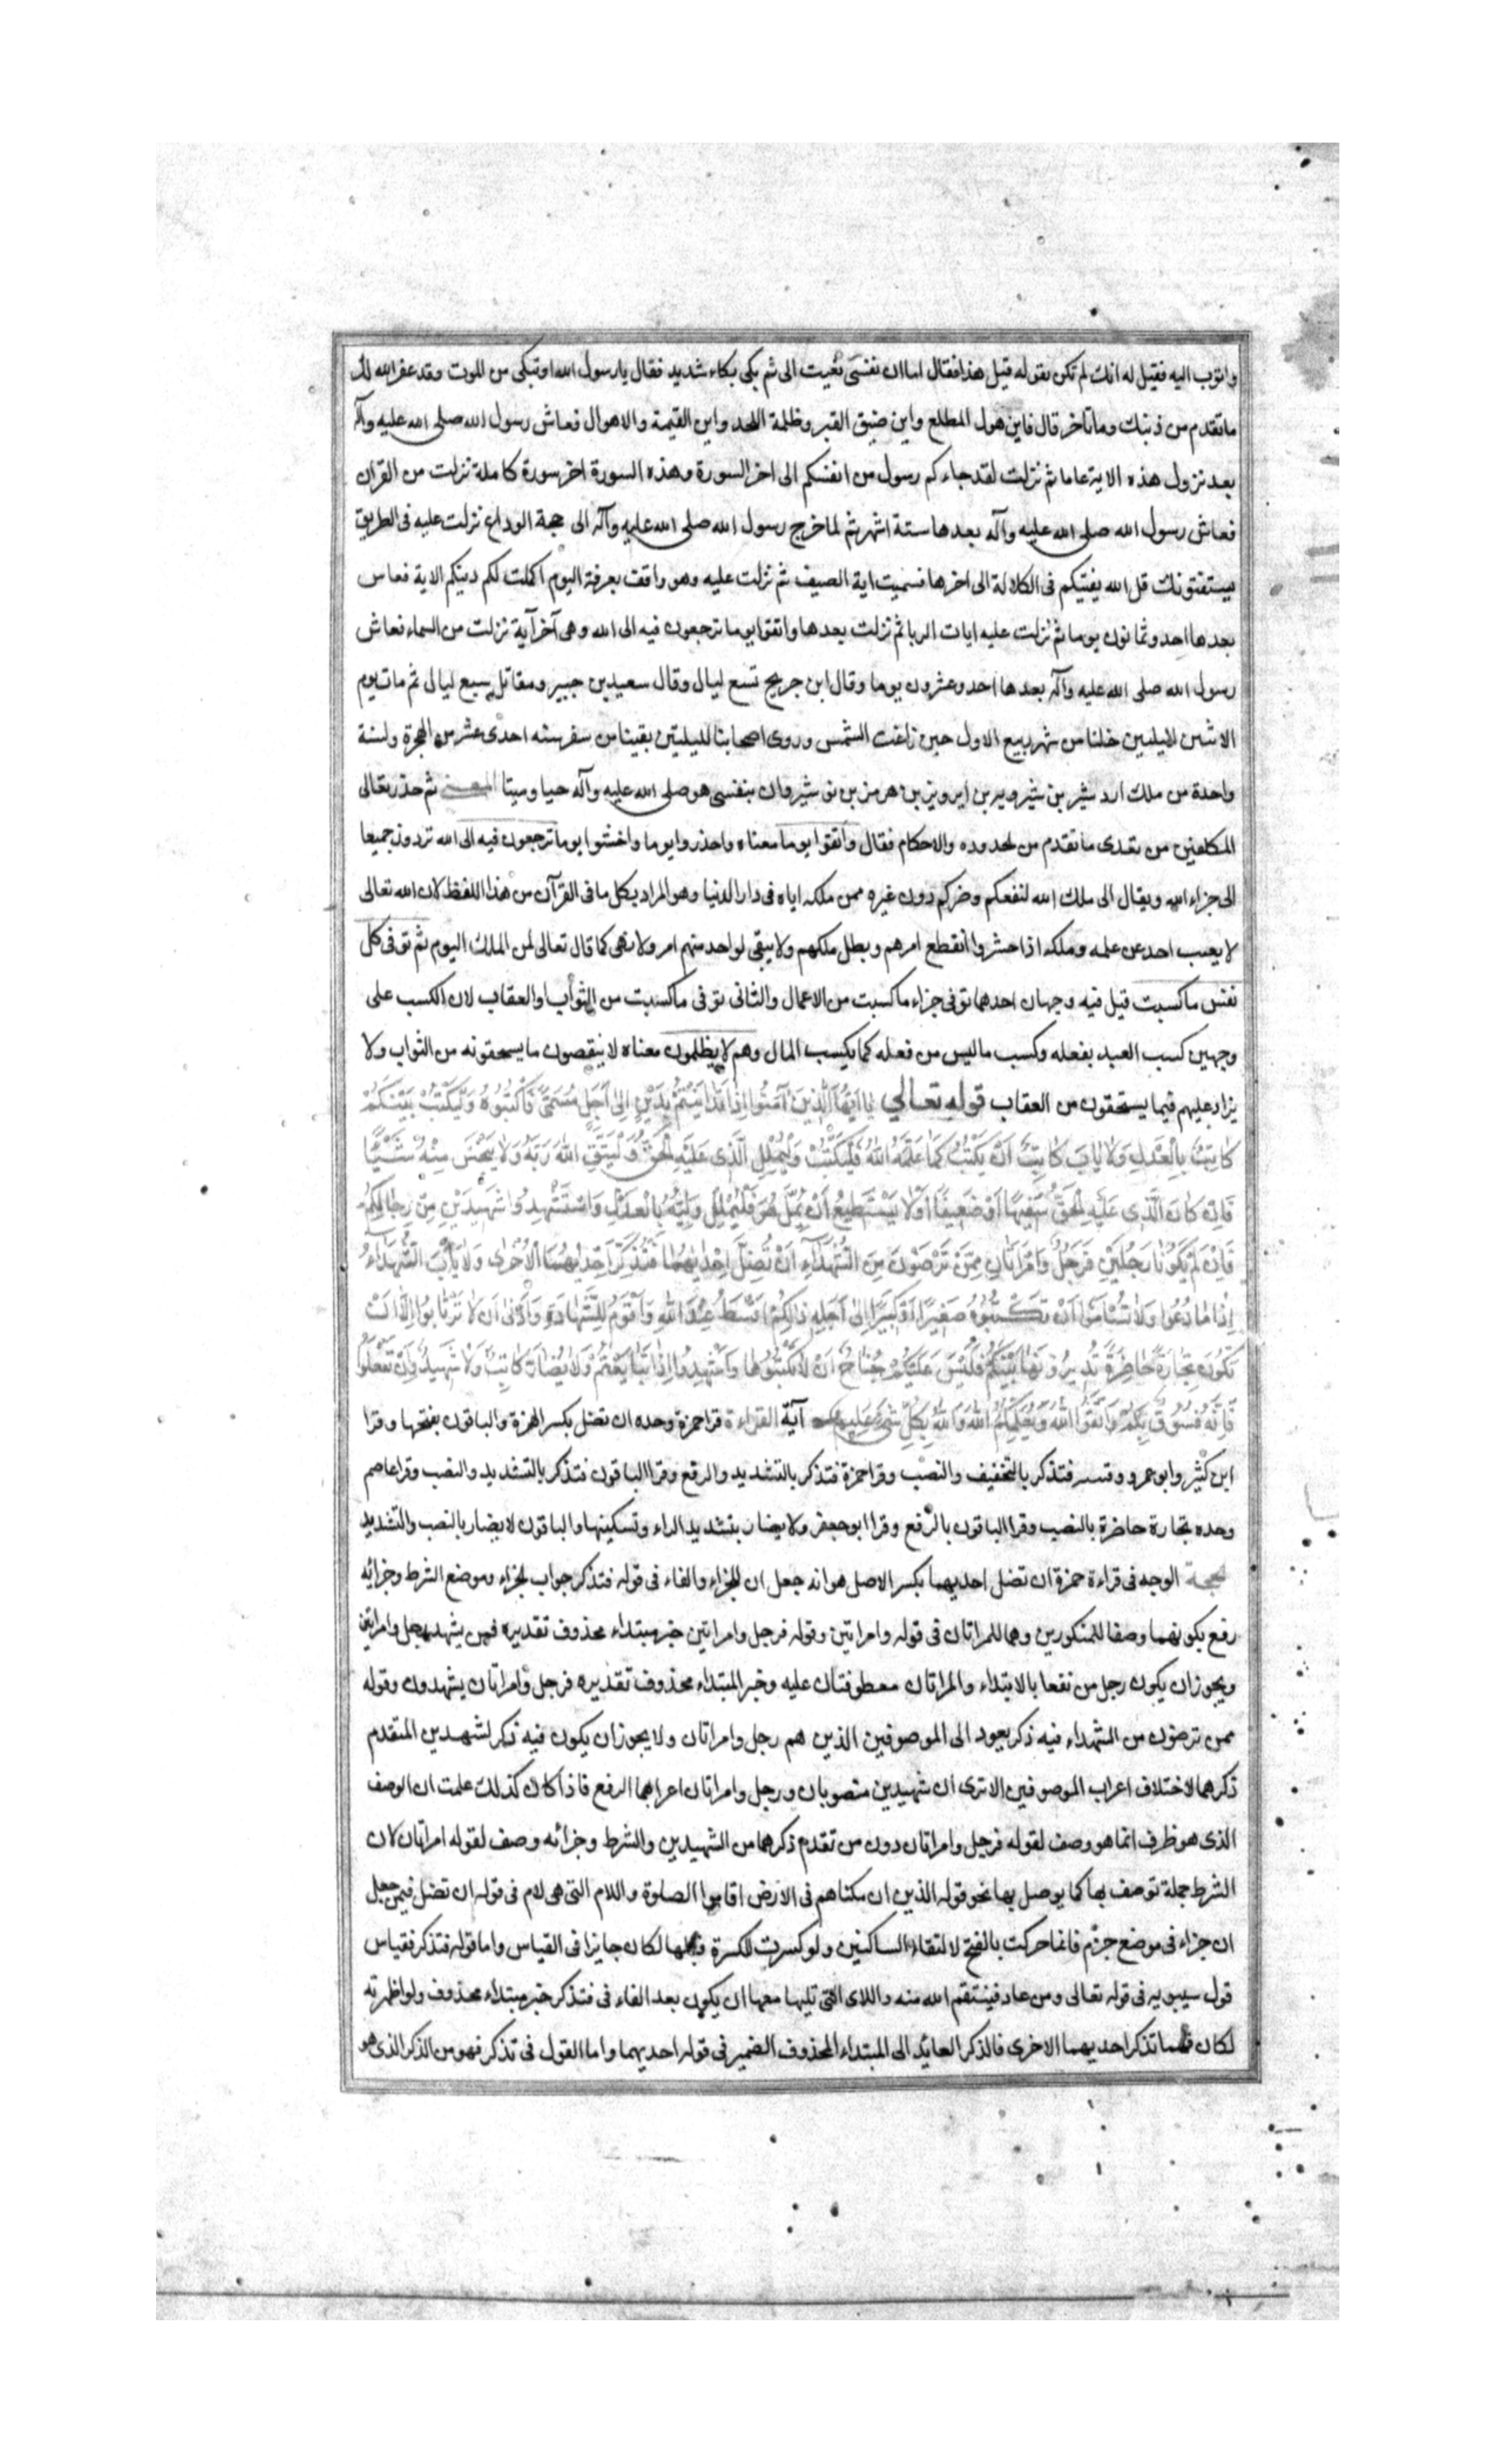 واتوب اليه فقيل له انك لم تكن تقوله قبل هذا فقال اما ان نفسى نعيت الى ثم بكى بكاء شديد فقال يا رسول الله اوتبكى من الموت وقد غفر الله لك
ما تقدم من ذنبك وما تاخر قال فاين هول المطلع واين ضيق القبر وظلمة اللحد واين القيمة والاهوال فعاش رسول الله صلى الله عليه وآله
بعد نزول هذه الاية عاما ثم نزلت لقد جاءكم رسول من انفسكم الى اخر السورة وهذه السورة اخر سورة كاملة نزلت من القران
فعاش رسول الله صلى الله عليه وآله بعدها ستة اشهر ثم لما خرج رسول الله صلى الله عليه وآله الى حجة الوداع نزلت عليه فى الطريق
يستفتونك قل الله يفتيكم فى الكلالة الى اخرها فسميت اية الصيف ثم نزلت عليه وهو واقف بعرفة اليوم اكملت لكم دينكم الاية فعاس
بعدها احد وثمانون يوما ثم نزلت عليه ايات الربا ثم نزلت بعدها واتقوا يوما ترجعون فيه الى الله وهى آخر آية نزلت من السماء فعاش
رسول الله صلى الله عليه وآله بعدها احد وعشرون يوما وقال ابن جريج تسع ليال وقال سعيد بن جبير ومقاتل سبع ليال ثم مات يوم
الاثنين لليلتين خلتا من شهر ربيع الاول حين زاغت الشمس وروى اصحابنا لليلتين بقيتا من سفر سنه احدى عشر من الهجرة ولسنة
واحدة من ملك ارد شير بن شيرويه بن ابرويز بن هرمز بن نوشيروان بنفسى هو صلى الله عليه وآله حيا وميتا المعنى ثم حذر تعالى
المكلفين من تعدى ما تقدم من لحدوده والاحكام فقال واتقوا يوما معناه واحذروا يوما واخشوا يوما ترجعون فيه الى الله تردون جميعا
الى جزاء الله ويقال الى ملك الله لنفعكم وضركم دون غيره ممن ملكه اياه فى دار الدنيا وهو المراد بكل ما فى القرآن من هذا اللفظ لان الله تعالى
لا يعيب احد عن علمه وملكه اذا حشروا انقطع امرهم وبطل ملكهم ولا يبقى لواحد منهم امر ولا نهى كما قال تعالى لمن الملك اليوم ثم توفى كل
نفس ما كسبت قيل فيه وجهان احدهما توفى جزاء ما كسبت من الاعمال والثانى توفى ما كسبت من الثواب والعقاب لان الكسب على
وجهين كسب العبد بفعله وكسب ما ليس من فعله كما يكسب المال وهم لا يظلمون معناه لا ينقصون ما يستحقونه من الثواب ولا
يزاد عليهم فيما يستحقون من العقاب قوله تعالى يَا اَيُّهَا الَّذِينَ آمَنُوا اِذَا تَدَايَنْتُمْ بِدَيْنٍ اِلى اَجَلٍ مُسَمًّى فَاكْتُبُوهُ وَلْيَكْتُبْ بَيْنَكُمْ
كَاتِبٌ بِالْعَدْلِ وَلَا يَابَ كَاتِبٌ اَنْ يَكْتُبَ كَمَا عَلَّمَهُ اللّٰهُ فَلْيَكْتُبْ وَلْيُمْلِلِ الَّذِى عَلَيْهِ الْحَقُّ وَلْيَتَّقِ اللّٰهَ رَبَّهُ وَلَا يَبْخَسْ مِنْهُ شَيْئًا
فَاِنْ كَانَ الَّذِى عَلَيْهِ الْحَقُّ سَفِيهًا اَوْ ضَعِيفًا اَوْلَا يَسْتَطِيعُ اَنْ يُمِلَّ هُوَ فَلْيُمْلِلْ وَلِيُّهُ بِالْعَدْلِ وَاسْتَشْهِدُوا شَهِيدَيْنِ مِنْ رِجَالِكُمْ
فَاِنْ لَمْ يَكُونَا رَجُلَيْنِ فَرَجُلٌ وَامْرَاَتَانِ مِمَّنْ تَرْضَوْنَ مِنَ الشُّهَدَآءِ اَنْ تَضِلَّ اِحْدٰيهُمَا فَتُذَكِّرَ اِحْدٰيهُمَا الْاُخْرٰى وَلَا يَأْبَ الشُّهَدَاءُ
اِذَا مَا دُعُوا وَلَا تَسْاَمُوا اَنْ تَكْتُبُوهُ صَغِيرًا اَوْ كَبِيرًا اِلى اَجَلِهِ ذَالِكُمْ اَقْسَطُ عِنْدَ اللّٰهِ وَاَقْوَمُ لِلشَّهَادَةِ وَاَدْنٰى اَن لَا تَرْتَابُوا اِلَّا اَنْ
تَكُونَ تِجَارَةً حَاضِرَةً تُدِيرُونَهَا بَيْنَكُمْ فَلَيْسَ عَلَيْكُمْ جُنَاحٌ اَنْ لَا تَكْتُبُوهَا وَاَشْهِدُوا اِذَا تَبَايَعْتُمْ وَلَا يُضَارَّ كَاتِبٌ وَلَا شَهِيدٌ وَاِنْ تَفْعَلُوا
فَاِنَّهُ فُسُوقٌ بِكُمْ وَاتَّقُوا اللّٰهَ وَيُعَلِّمُكُمُ اللّٰهُ وَاللّٰهُ بِكُلِّ شَىْءٍ عَلِيمٌ آية القراءة قرا حمزة وحده ان تضل بكسر الهمزة والباقون بفتحها وقرا
ابن كثير وابو عمرو وقتيبه فتذكر بالتخفيف والنصب وقرا حمزة فتذكر بالتشديد والرفع وقرا الباقون فتذكر بالتشديد والنصب وقرا عاصم
وحده تجارة حاضرة بالنصب وقرا الباقون بالرفع وقرا ابو جعفر ولا يضار بتشديد الراء وتسكينها والباقون لا يضار بالنصب والتشديد
لحجة الوجه فى قراءة حمزة ان تضل احديهما بكسر الاصل هو انه جعل ان للجزاء والفاء فى قوله فتذكر جواب لجزاء وموضع الشرط وجزائه
رفع بكونهما وصفا للمنكورين وهما المراتان فى قوله وامراتين وقوله فرجل وامراتين خبر مبتداء محذوف تقديره فمن يشهد رجل وامراتين
ويجوز ان يكون رجل من نفعا بالابتداء والمراتان معطوفتان عليه وخبر المبتداء محذوف تقديره فرجل وامراتان يشهدون وقوله
ممن ترضون من الشهداء فيه ذكر يعود الى الموصوفين الذين هم رجل وامراتان ولا يجوز ان يكون فيه ذكر لشهدين المتقدم
ذكرهما لاختلاف اعراب الموصوفين الا ترى ان شهيدين منصوبان ورجل وامراتان اعرابهما الرفع فاذا كان كذلك علمت ان الوصف
الذى هو ظرف انما هو وصف لقوله فرجل وامراتان دون من تقدم ذكرهما من الشهيدين والشرط وجزائه وصف لقوله امراتان لان
الشرط جملة توصف بها كما يوصل بها نحو قوله الذين ان مكناهم فى الارض اقاموا الصلوة واللام التى هى لام فى قوله ان تضل فيمن جعل
ان جزاء فى موضع جزم فانما حركت بالفتح لالتقاء الساكنين ولو كسرت للكسرة قبلها لكان جايزا فى القياس واما قوله فتذكر فقياس
قول سيبويه فى قوله تعالى ومن عاد فينتقم الله منه واللاى التى تليها معها ان يكون بعد الفاء فى فتذكر خبر مبتداء محذوف ولو اظهرته
لكان فهما تذكر احديهما الاخرى فالذكر العائد الى المبتداء المحذوف الضمير فى قوله احديهما واما القول فى تذكر فهو من الذكر الذى هو